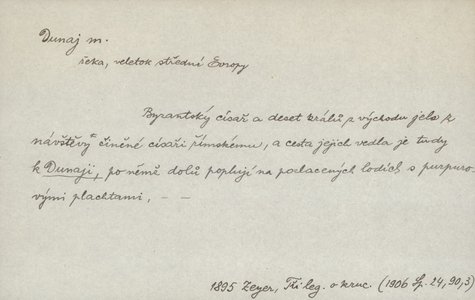 Dunaj m.
řeka, veletok střední Evropy
Byzantský císař a deset králů z východu jelo k
návštěvě činěné císaři římskému, a cesta jejich vedla je tudy
k Dunaji, po němž dolů poplují na pozlacených lodích s purpuro-
vými plachtami. — —
1895 Zeyer, Tři leg. o kruc. (1906 Sp. 24, 90, 3)